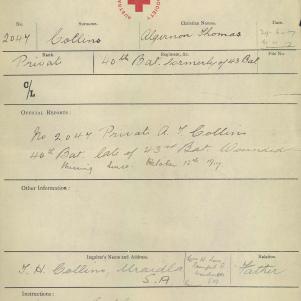 AUSTR
SOCIETY
No. Surname. Christian Names. Date.
2047 Collins Algernon Thomas
Rank. Regiment, &c. File No.
Private 40th Bat. formerly of 43 Bat
C/L
OFFICIAL REPORTS:
No 2047 Private A. T. Collins
40th Bat. late of 43rd Bat. Wounded
Missing since October 12th 1917
Other Information:
Inquirer's Name and Address. Relation.
T. H. Collins, Uraidla Father
S.A
Instructions: